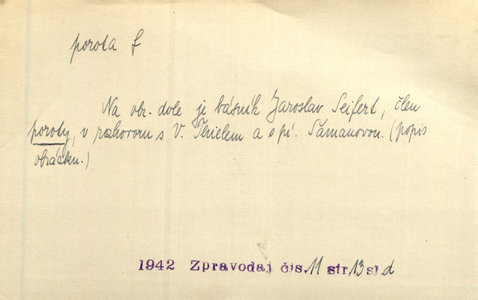 porota f
Na obr. dole je básník Jaroslav Seifert, člen
poroty, v rozhovoru s V. Thielem a s pí. Šamanovou. (popis
obrázku.)
1942 Zpravodaj čís. 11 str. 13 sl. d